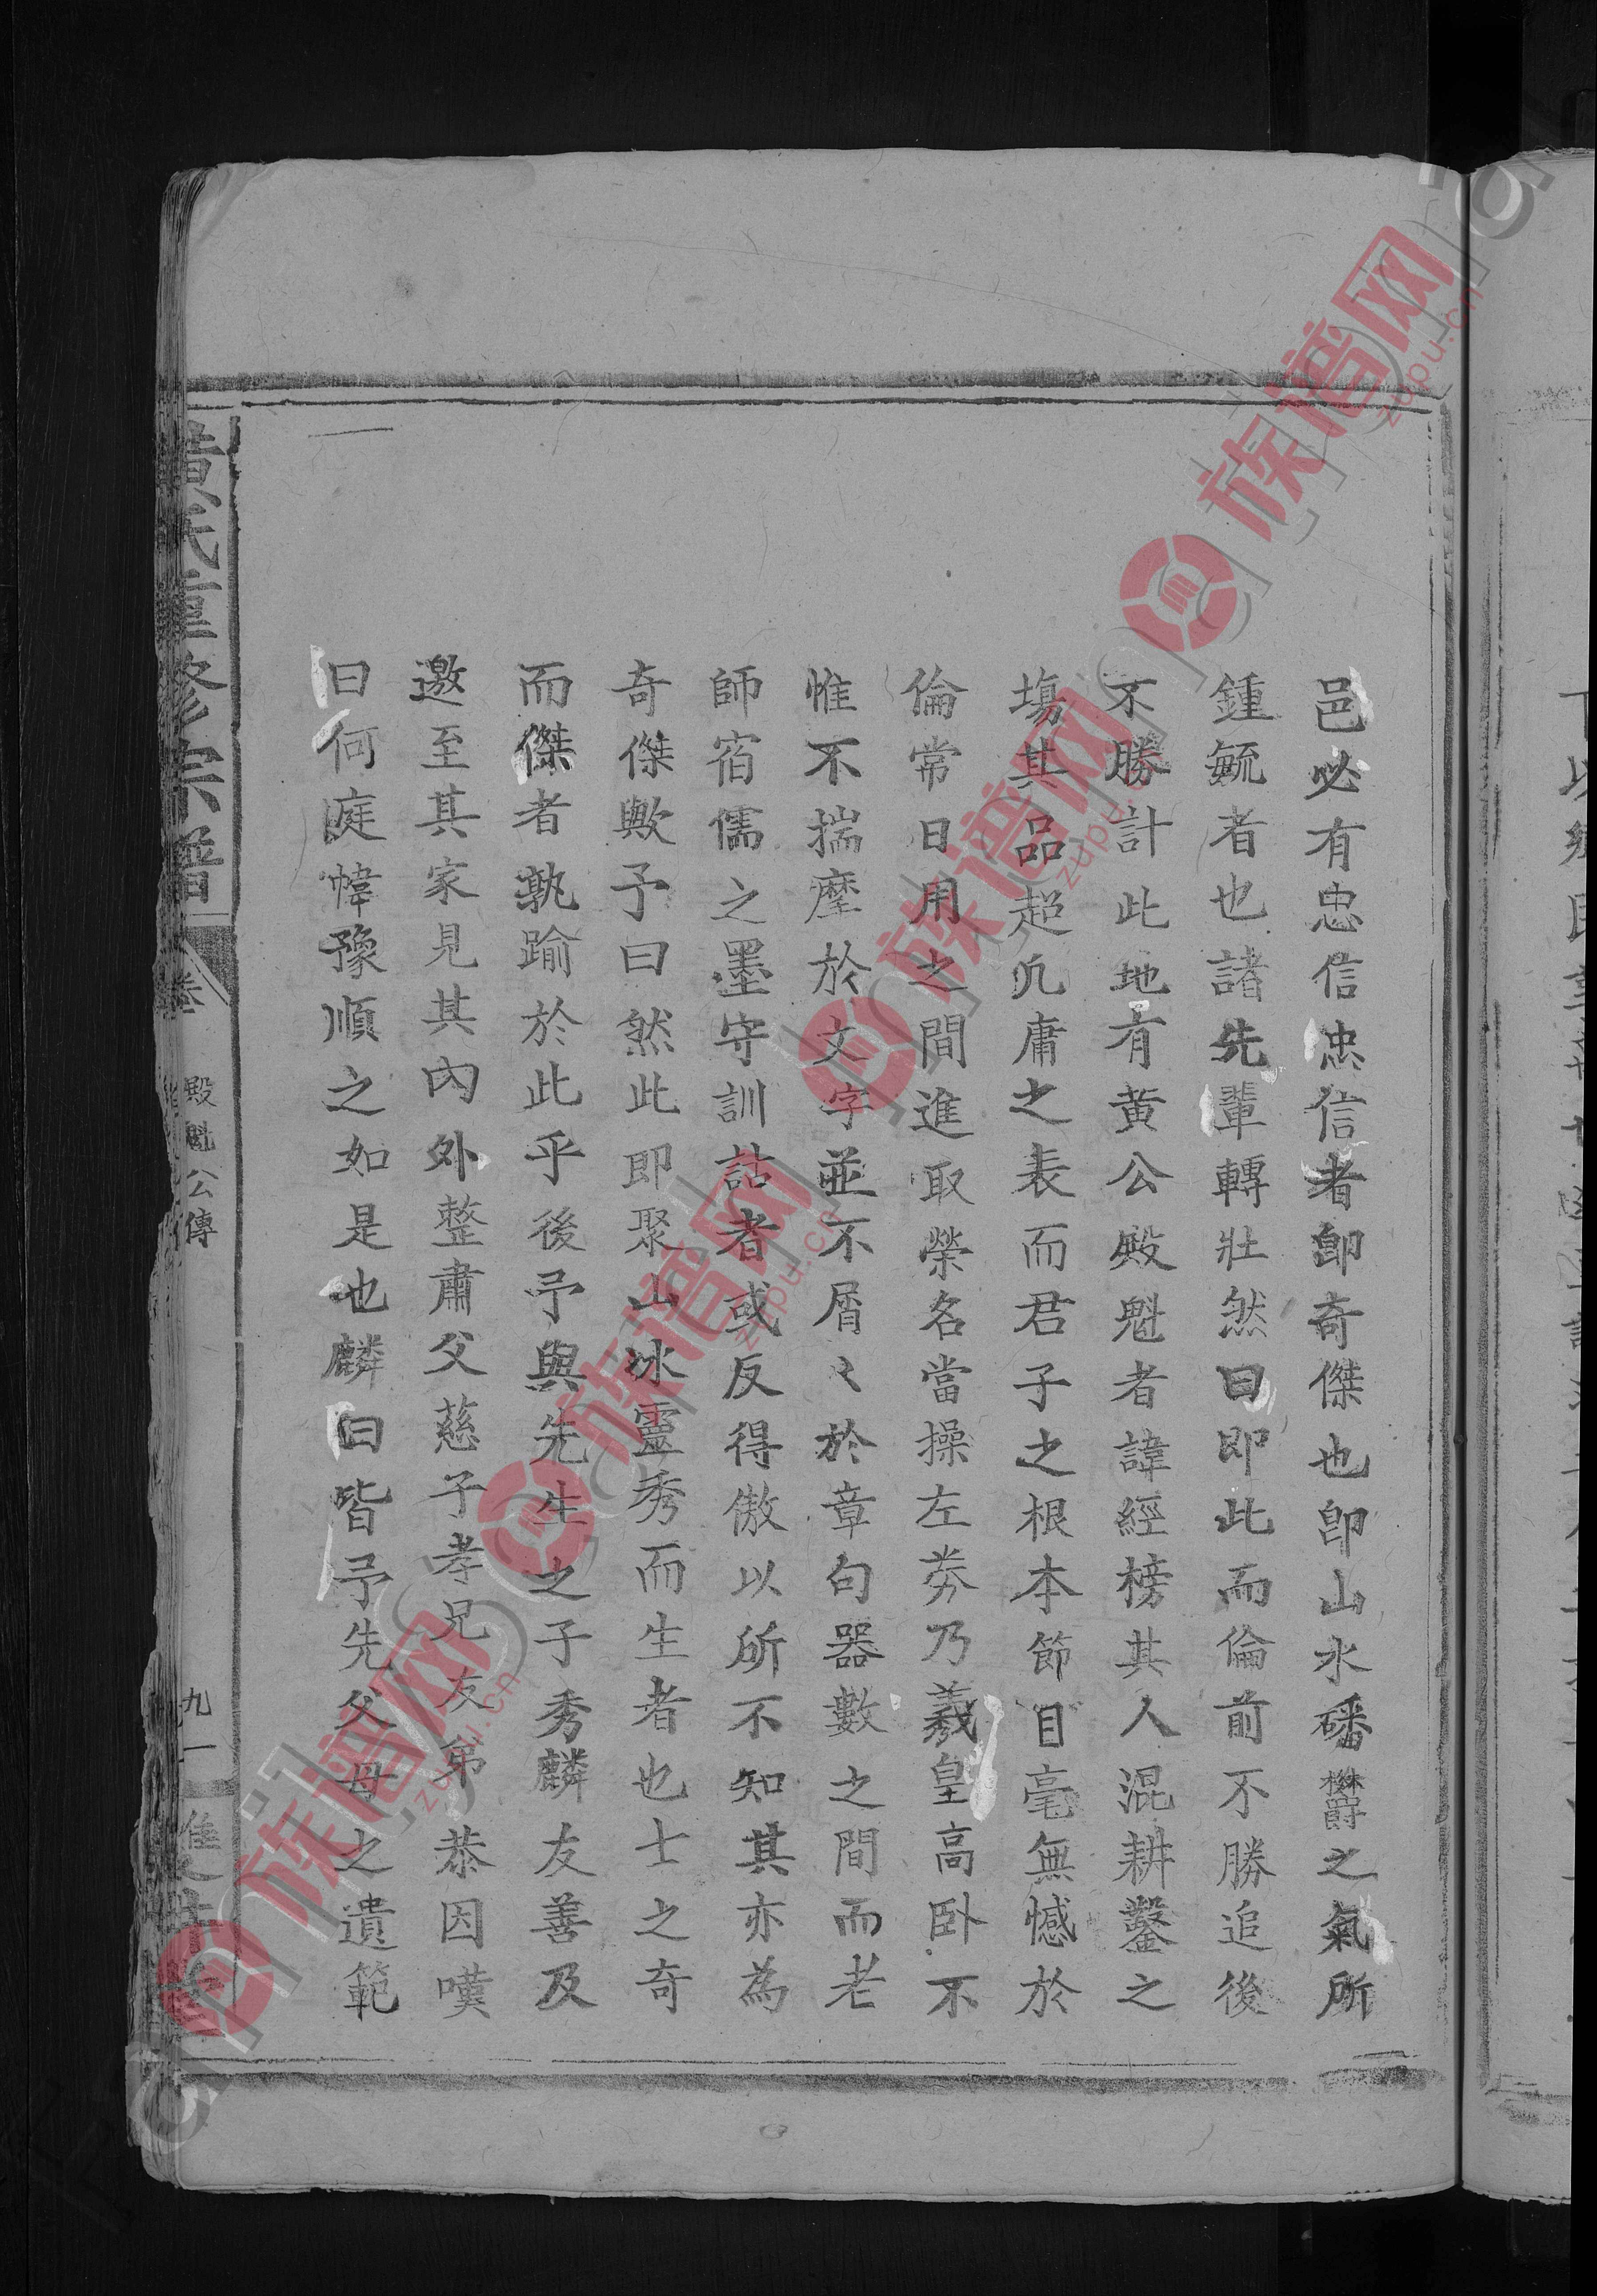 邑必有忠信忠信者卽奇傑也卽山水磻欝之氣所
鍾毓者也諸先輩轉壯然曰即此而倫前不勝追後
不勝計此地有黄公殿魁者諱經榜其人混耕鑿之
塲其品超凢庸之表而君子之根本節目毫無憾於
倫常日用之間進取榮名當操左劵乃羲皇高卧不
惟不揣摩於文字並不屑〻於章句器數之間而老
師宿儒之墨守訓詁者或反得傲以所不知其亦為
奇傑歟予曰然此即聚山氷靈秀而生者也士之奇
而傑者孰踰於此乎後予與先生之子秀麟友善及
邀至其家見其內外整肅父慈子孝兄友弟恭因嘆
曰何庭幃豫順之如是也麟曰皆予先父母之遺範
黄氏重修宗譜
卷
殿魁公傳
九一
族谱网
zupu.cn
族谱网
zupu.cn
族谱网
zupu.cn
族谱网
zupu.cn